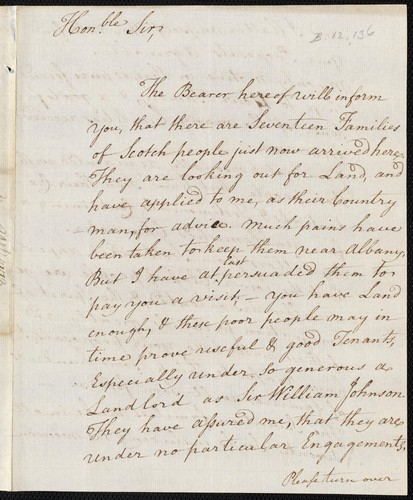 Hon.ble Sir,
B: 12, 136
The Bearer hereof will inform
you, that there are Seventeen Families
of Scotch people just now arrived here.
They are looking out for Land, and
have applied to me, as their Country
man, for advice. Much pains have
been taken to keep them near Albany,
But I have at last persuaded them to
pay you a visit, – you have Land
enough, & these poor people may in
time prove useful & good Tenants,
Especially under so generous a
Landlord as Sir William Johnson
They have assured me, that they are
under no particular Engagements,
Please turn over